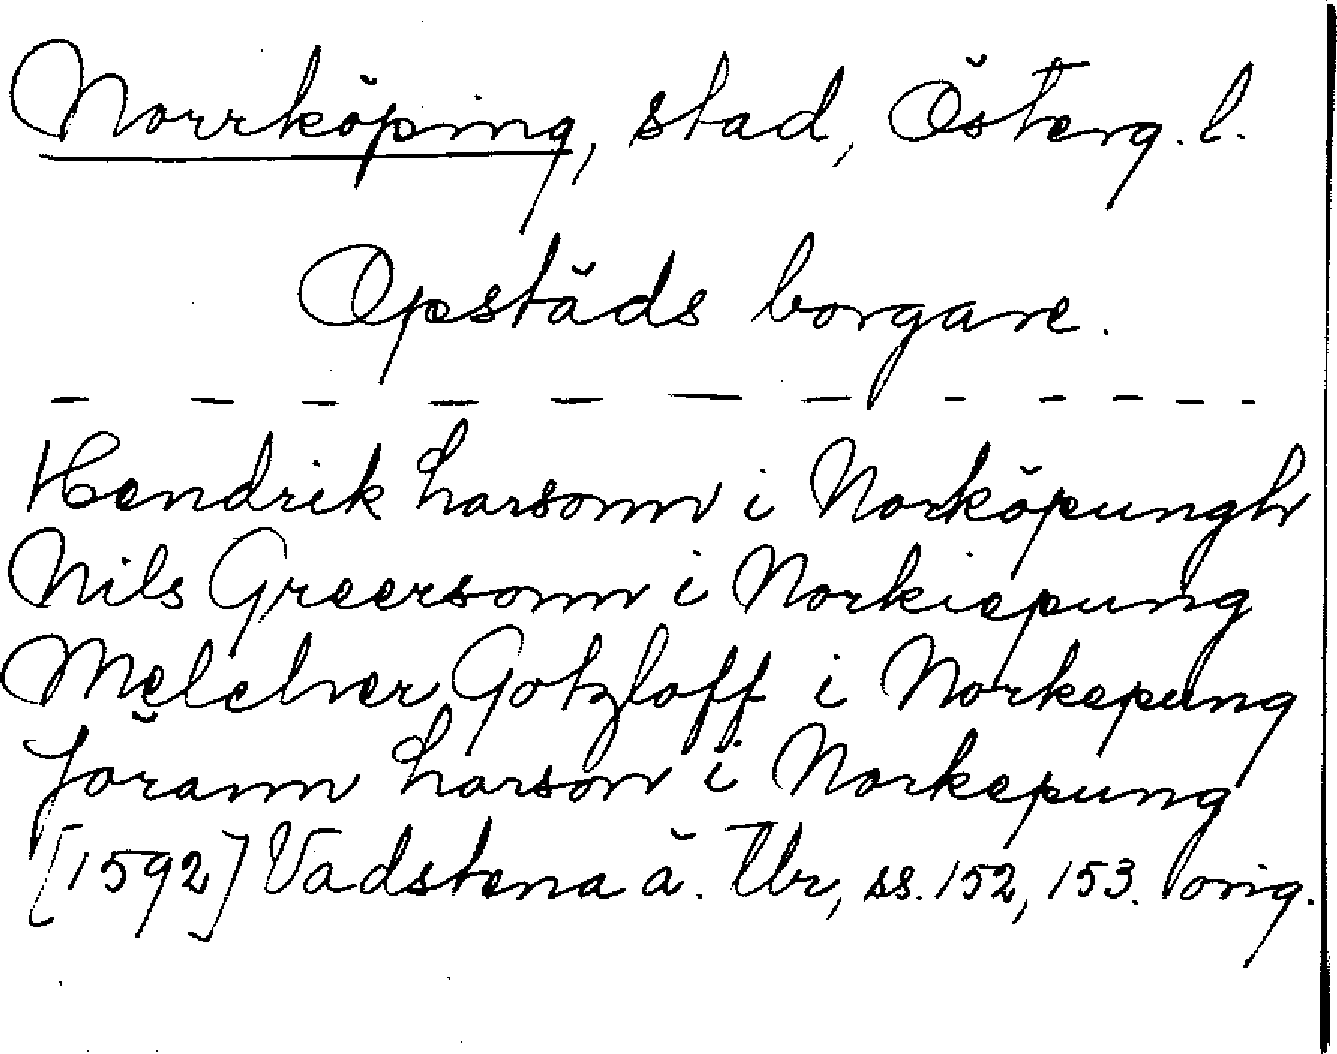 Norrköping, stad, Österg. l.
Opstäds borgare.
Hendrik Larsonn i Norköpungh
Nils Greersonn i Norkiepung
Melcher Gotzloff i Norkepung
Jörann Larson i Norkepung
[1592] Vadstena ä. Tbr, ss. 152, 153. orig.